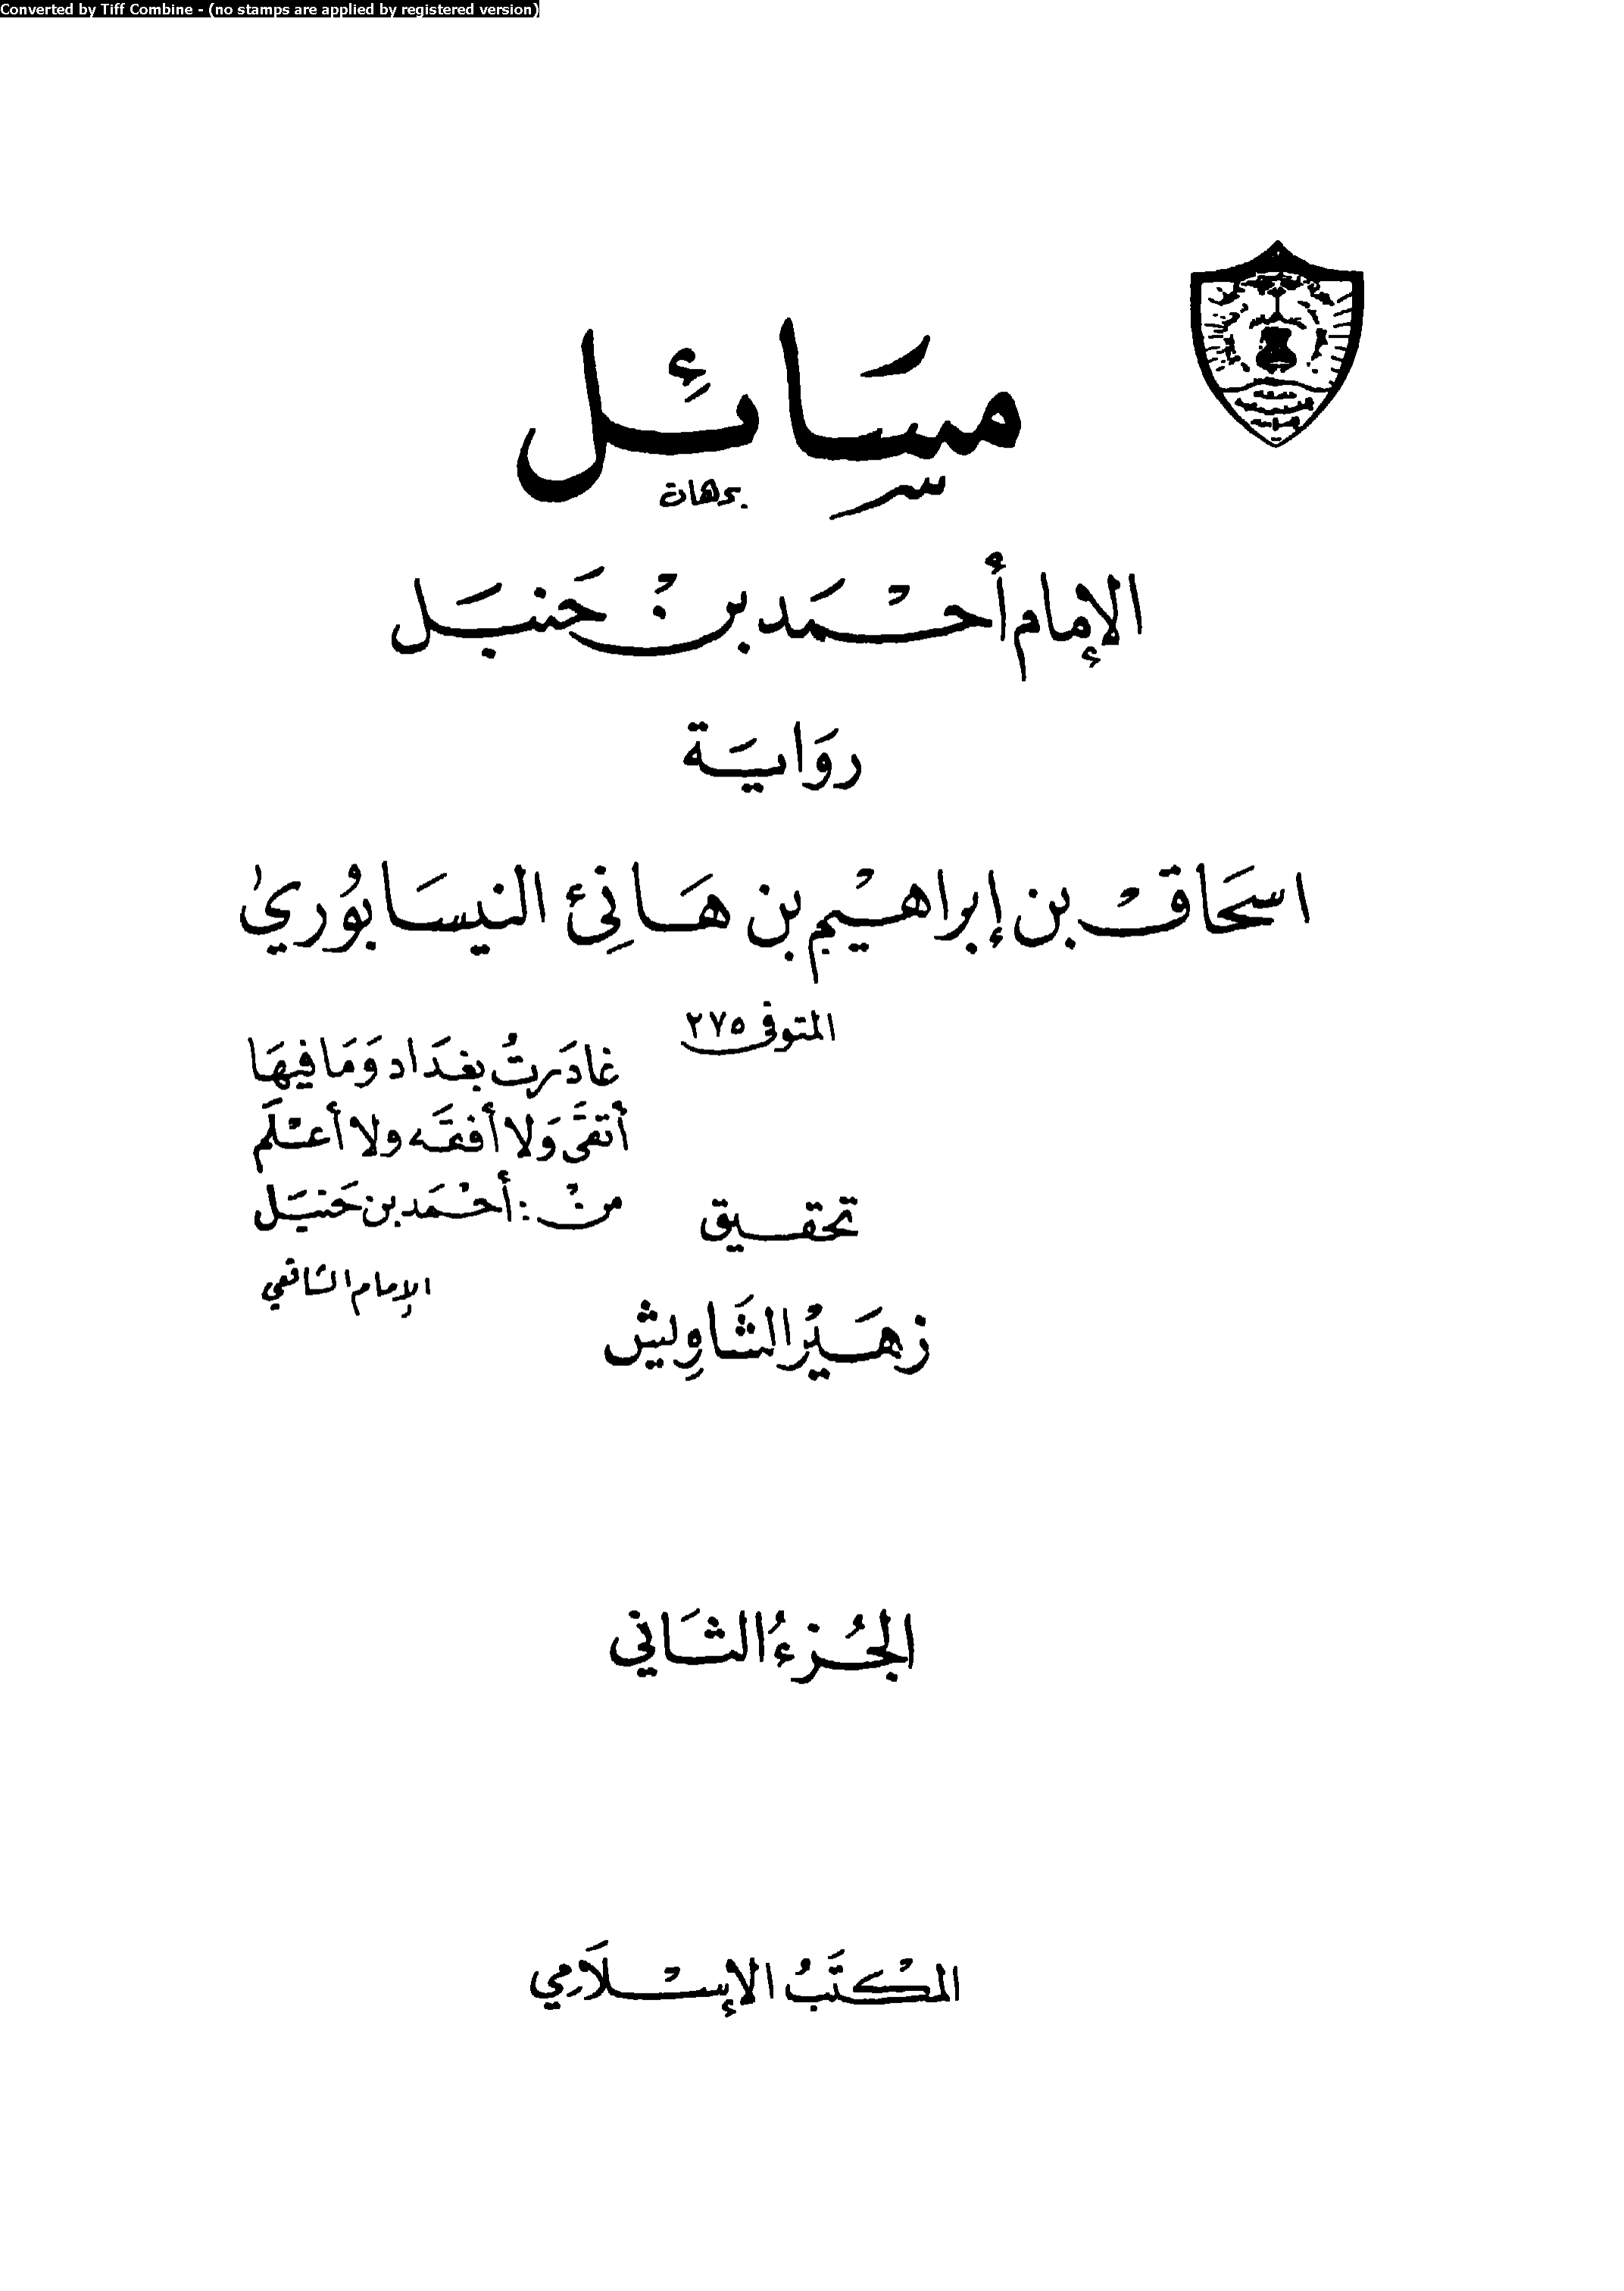 Converted by Tiff Combine - (no stamps are applied by registered version)
مسَائِل
الإمام أحْمَد بنْ حَنبَل
روَايَة
اسحَاقْ بن إبراهيْم بن هَانِئ النيسَابوُري
المتوفى ٢٧٥
غادَرتُ بغدَاد وَمَا فيهَا
أتقىَ وَلا أفقَه ولا أعْلَم
منْ : أحْمَد بن حَنبَل
الإمام الشافعي
تحقيق
زهَيْر الشَاوِيش
الجُزءُ الثَاني
المكتَبُ الإسْلَامِي